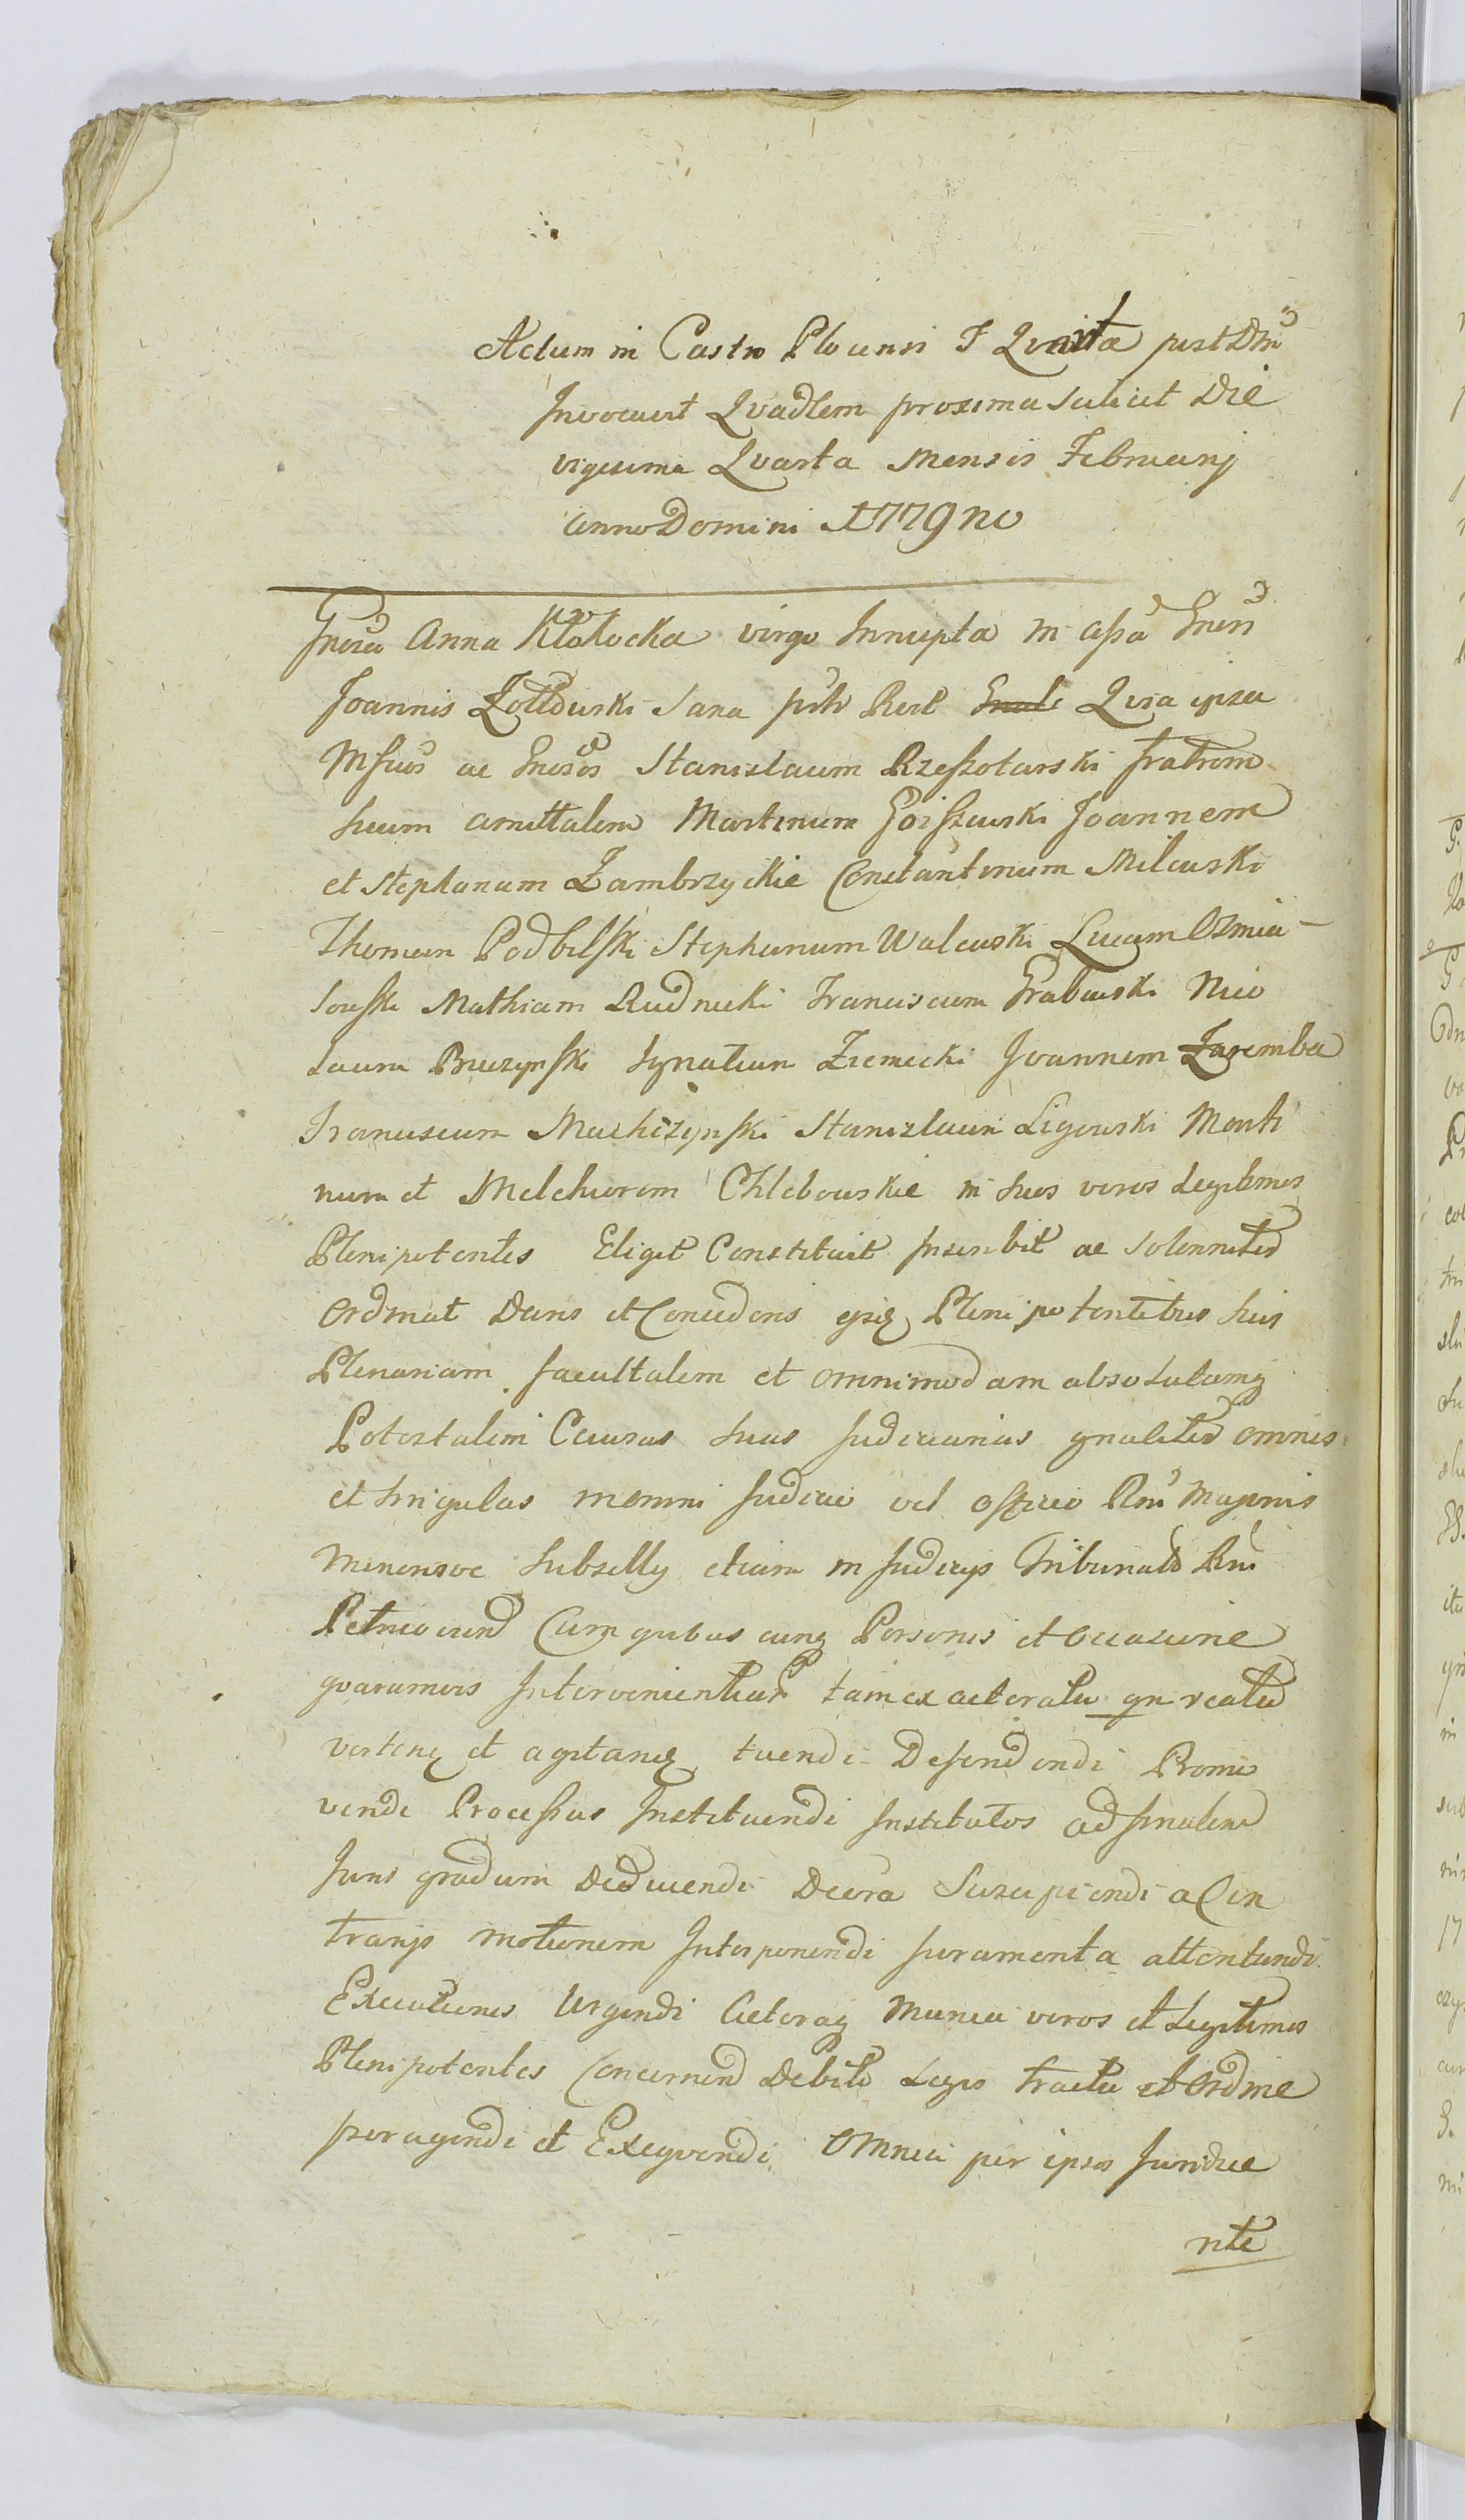 Actum in Castro Plocensi F Qvarta post Dnī
Invocavit Qvadlem proxima scilicet Die
vigesima Qvarta Mensis Februarij
Anno Domini 1779no
Gnosa Anna Kłokocka virgo Innupta in assā Gnosi
Joannis Żołtowski sana Qvia ipsa
Mficos ac Gnosos Stanislaum Rzeszotarski fratrem
suum amittalem Martinum Goiszewski Joannem
et Stephanum Zambrzyckie Constantinum Milewski
Thomam Podbilski Stephanum Walewski Lucam Ozmia-
lowski Mathiam Rudnicki Franciscum Grabowski Nico
laum Bruczynski Ignatium Ziemecki Joannem Zaremba
Franciscum Machczynski Stanislaum Ligowski Marti
num et Melchiorem Chlebowskie in suos veros Legitimos
Plenipotentes Eligit Constituit Inscribit ac solenniter
Ordinat Dans et Concedens ipsisq Plenipotentibus suis
Plenariam facultatem et omnimodam absolutamq
Potestatem Causas suas Judiciarias gnaliter omnes
et singulas in omni Judicio vel officio Rni Majoris
Minorisve Subsellij etiam in Judicijs Tribunalis Rni
Petricovien Cum quibus cunq Personis et occasione
qvarumvis Intervenientium tam ex actoratu qn reatu
verten et agitan tuendi Defendendi Promo
vendi Processus Instituendi Institutos ad finalem
Juris gradum Deducendi Decra Suscipiendi a Con
trarijs motionem Interponendi Juramenta attentandi
Executiones Urgendi Cetoraq Munia veros et Legitimos
Plenipotentes Concernen Debito Legis tractu et Ordine
peragendi et Exeqvendi Omnia per ipsos Juridice
rite